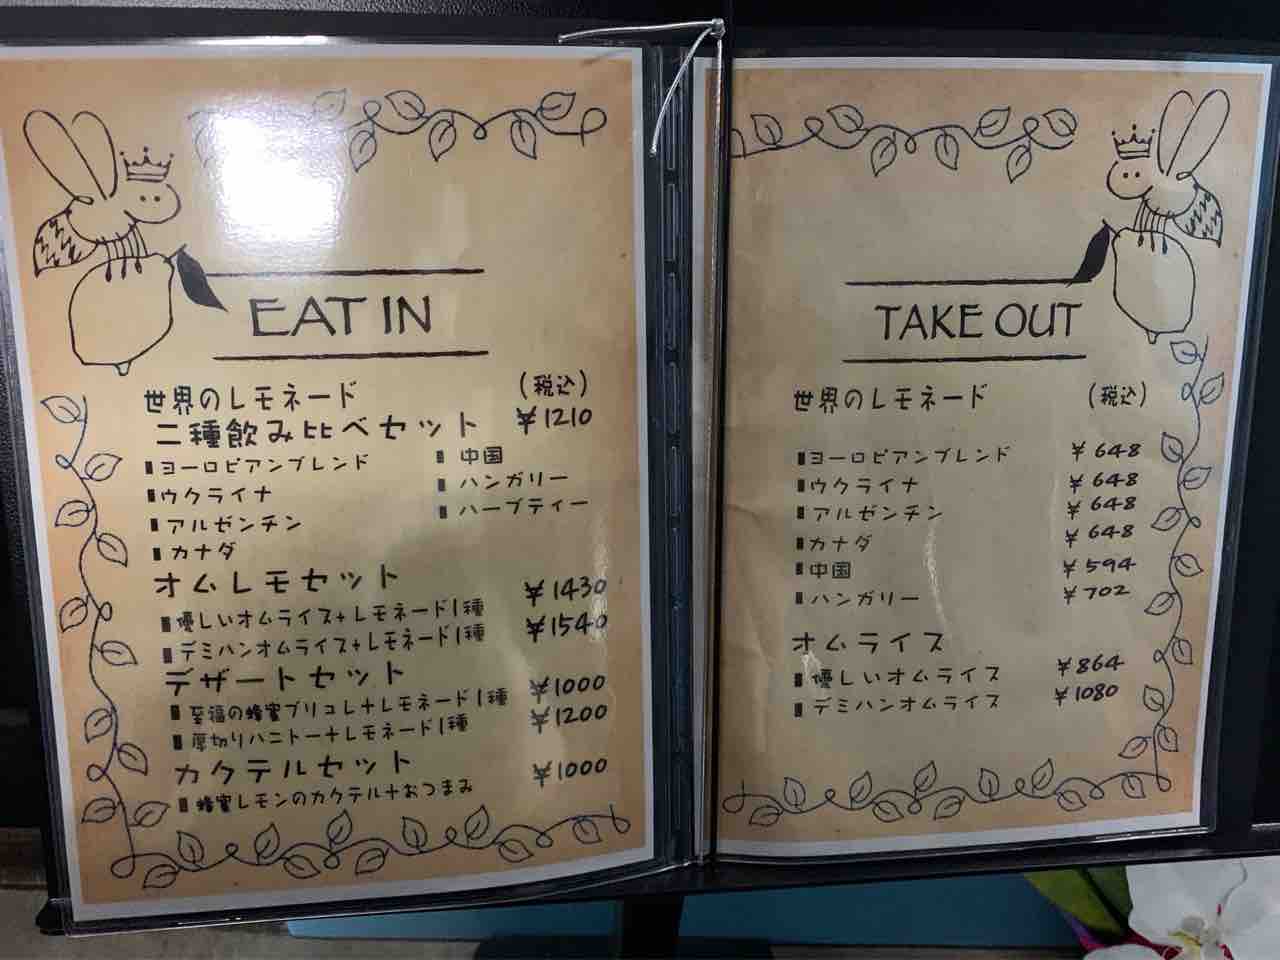 EAT IN
世界のレモネード (税込)
二種飲み比べセット ¥1210
■ヨーロピアンブレンド ■中国
■ウクライナ ■ハンガリー
■アルゼンチン ■ハーブティー
■カナダ
オムレモセット
■優しいオムライス+レモネード1種 ¥1430
■デミハンオムライス+レモネード1種 ¥1540
デザートセット
■至福の蜂蜜ブリュレ+レモネード1種 ¥1000
■厚切りハニトー+レモネード1種 ¥1200
カクテルセット
■蜂蜜レモンのカクテル+おつまみ ¥1000
TAKE OUT
世界のレモネード (税込)
■ヨーロピアンブレンド ¥648
■ウクライナ ¥648
■アルゼンチン ¥648
■カナダ ¥648
■中国 ¥594
■ハンガリー ¥702
オムライス
■優しいオムライス ¥864
■デミハンオムライス ¥1080